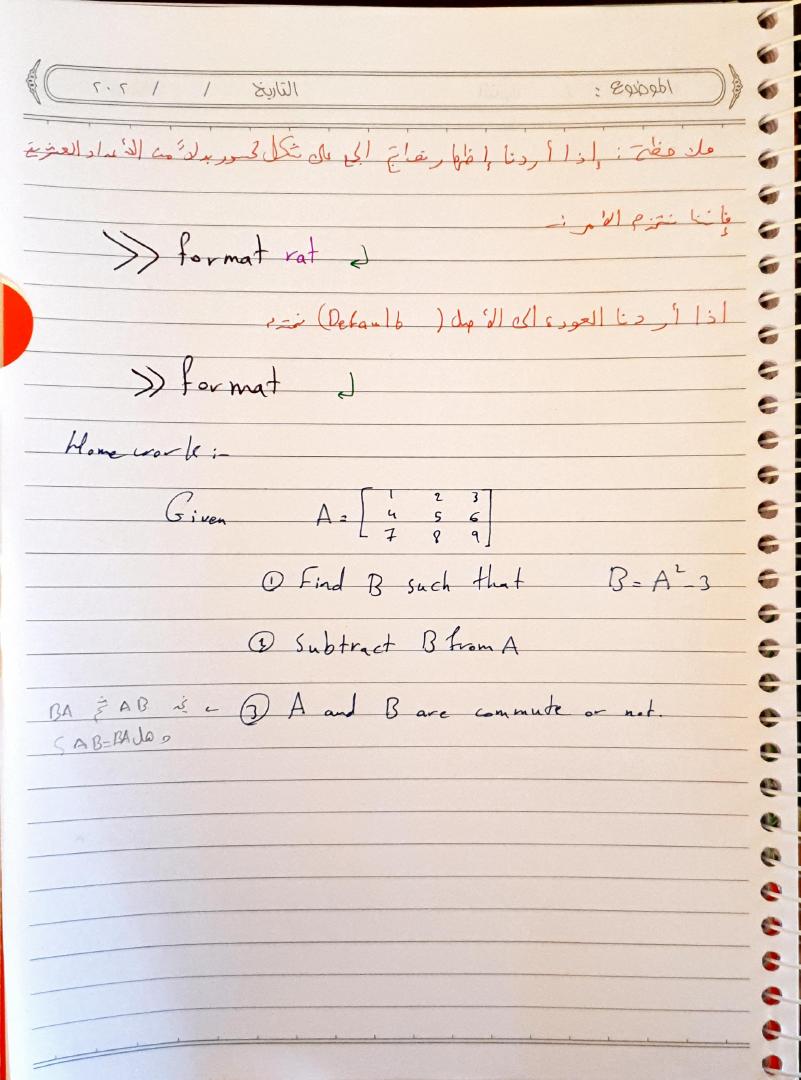 الموضوع : التاريخ / / ٢٠٢
ملاحظة : إذا أردنا إظهار نتائج على شكل كسور بدلاً من الأعداد العشرية
فإننا الأمر :-
>> format rat ↲
اذا أردنا العودة الى الأصل (Default)
>> format ↲
Homework :-
Given A = [ 1 2 3
4 5 6
7 8 9 ]
① Find B such that B = A² - 3
② Subtract B from A
③ A and B are commute or not. ← AB ثم BA
وهل AB=BA ؟